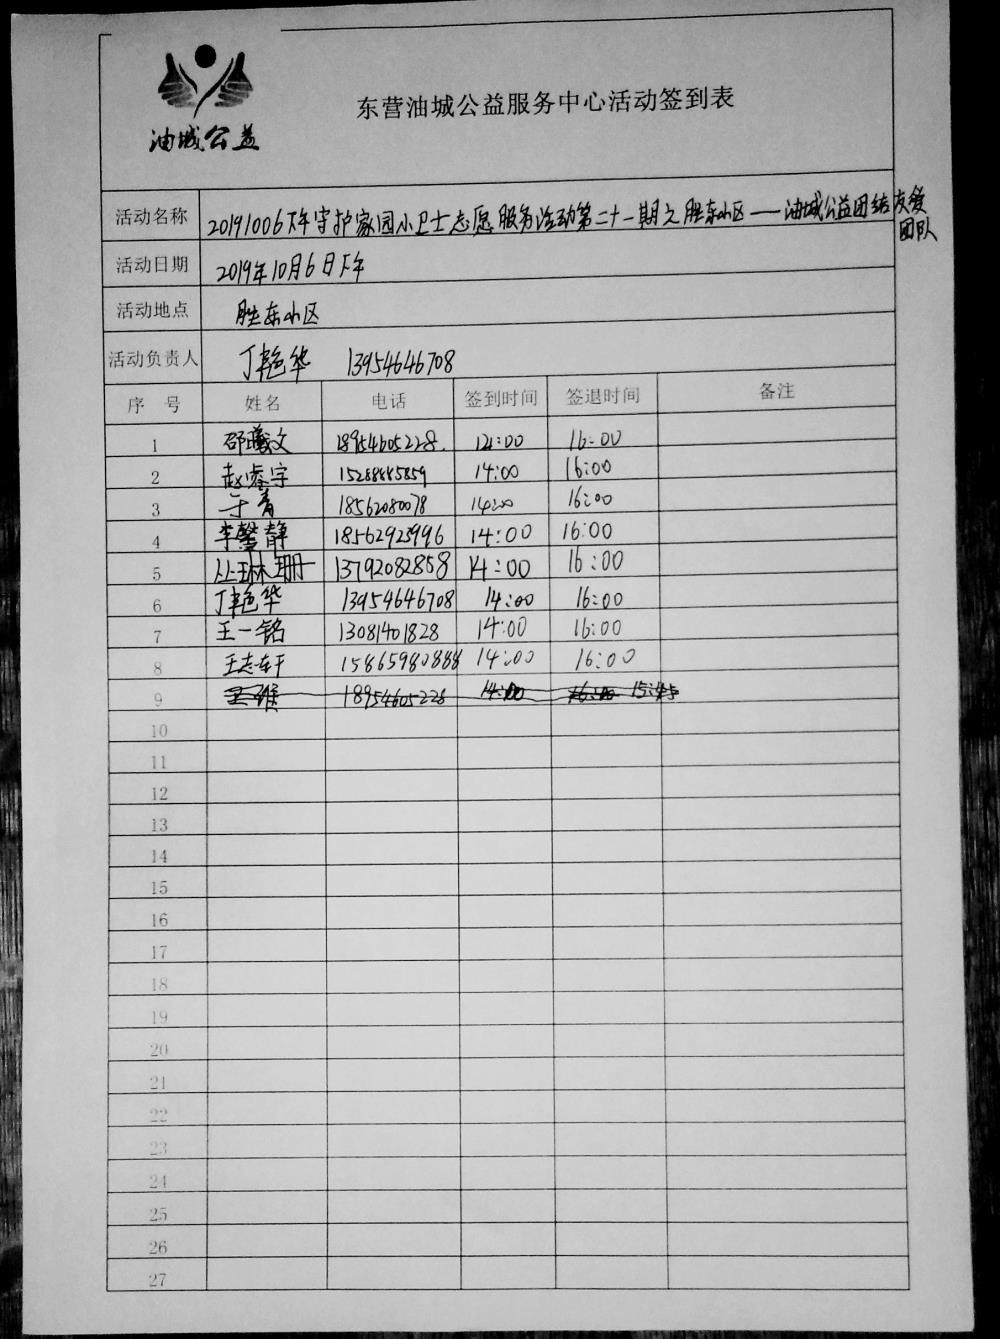 油城公益
东营油城公益服务中心活动签到表
活动名称 20191006下午守护家园小卫士志愿服务活动第二十一期之胜东小区——油城公益团结友爱
团队
活动日期 2019年10月6日下午
活动地点 胜东小区
活动负责人 丁艳华 13954646708
序 号 姓名 电话 签到时间 签退时间 备注
1 邵曦文 18954605228. 14:00 16:00
2 赵睿宇 15288885859 14:00 16:00
3 于青 18562080078 14:00 16:00
4 李馨静 18562923996 14:00 16:00
5 丛琳珊 13792082858 14:00 16:00
6 丁艳华 13954646708 14:00 16:00
7 王一铭 13081401828 14:00 16:00
8 王志轩 15865980888 14:00 16:00
9 18954605228 14:00 16:00 15:45
10
11
12
13
14
15
16
17
18
19
20
21
22
23
24
25
26
27